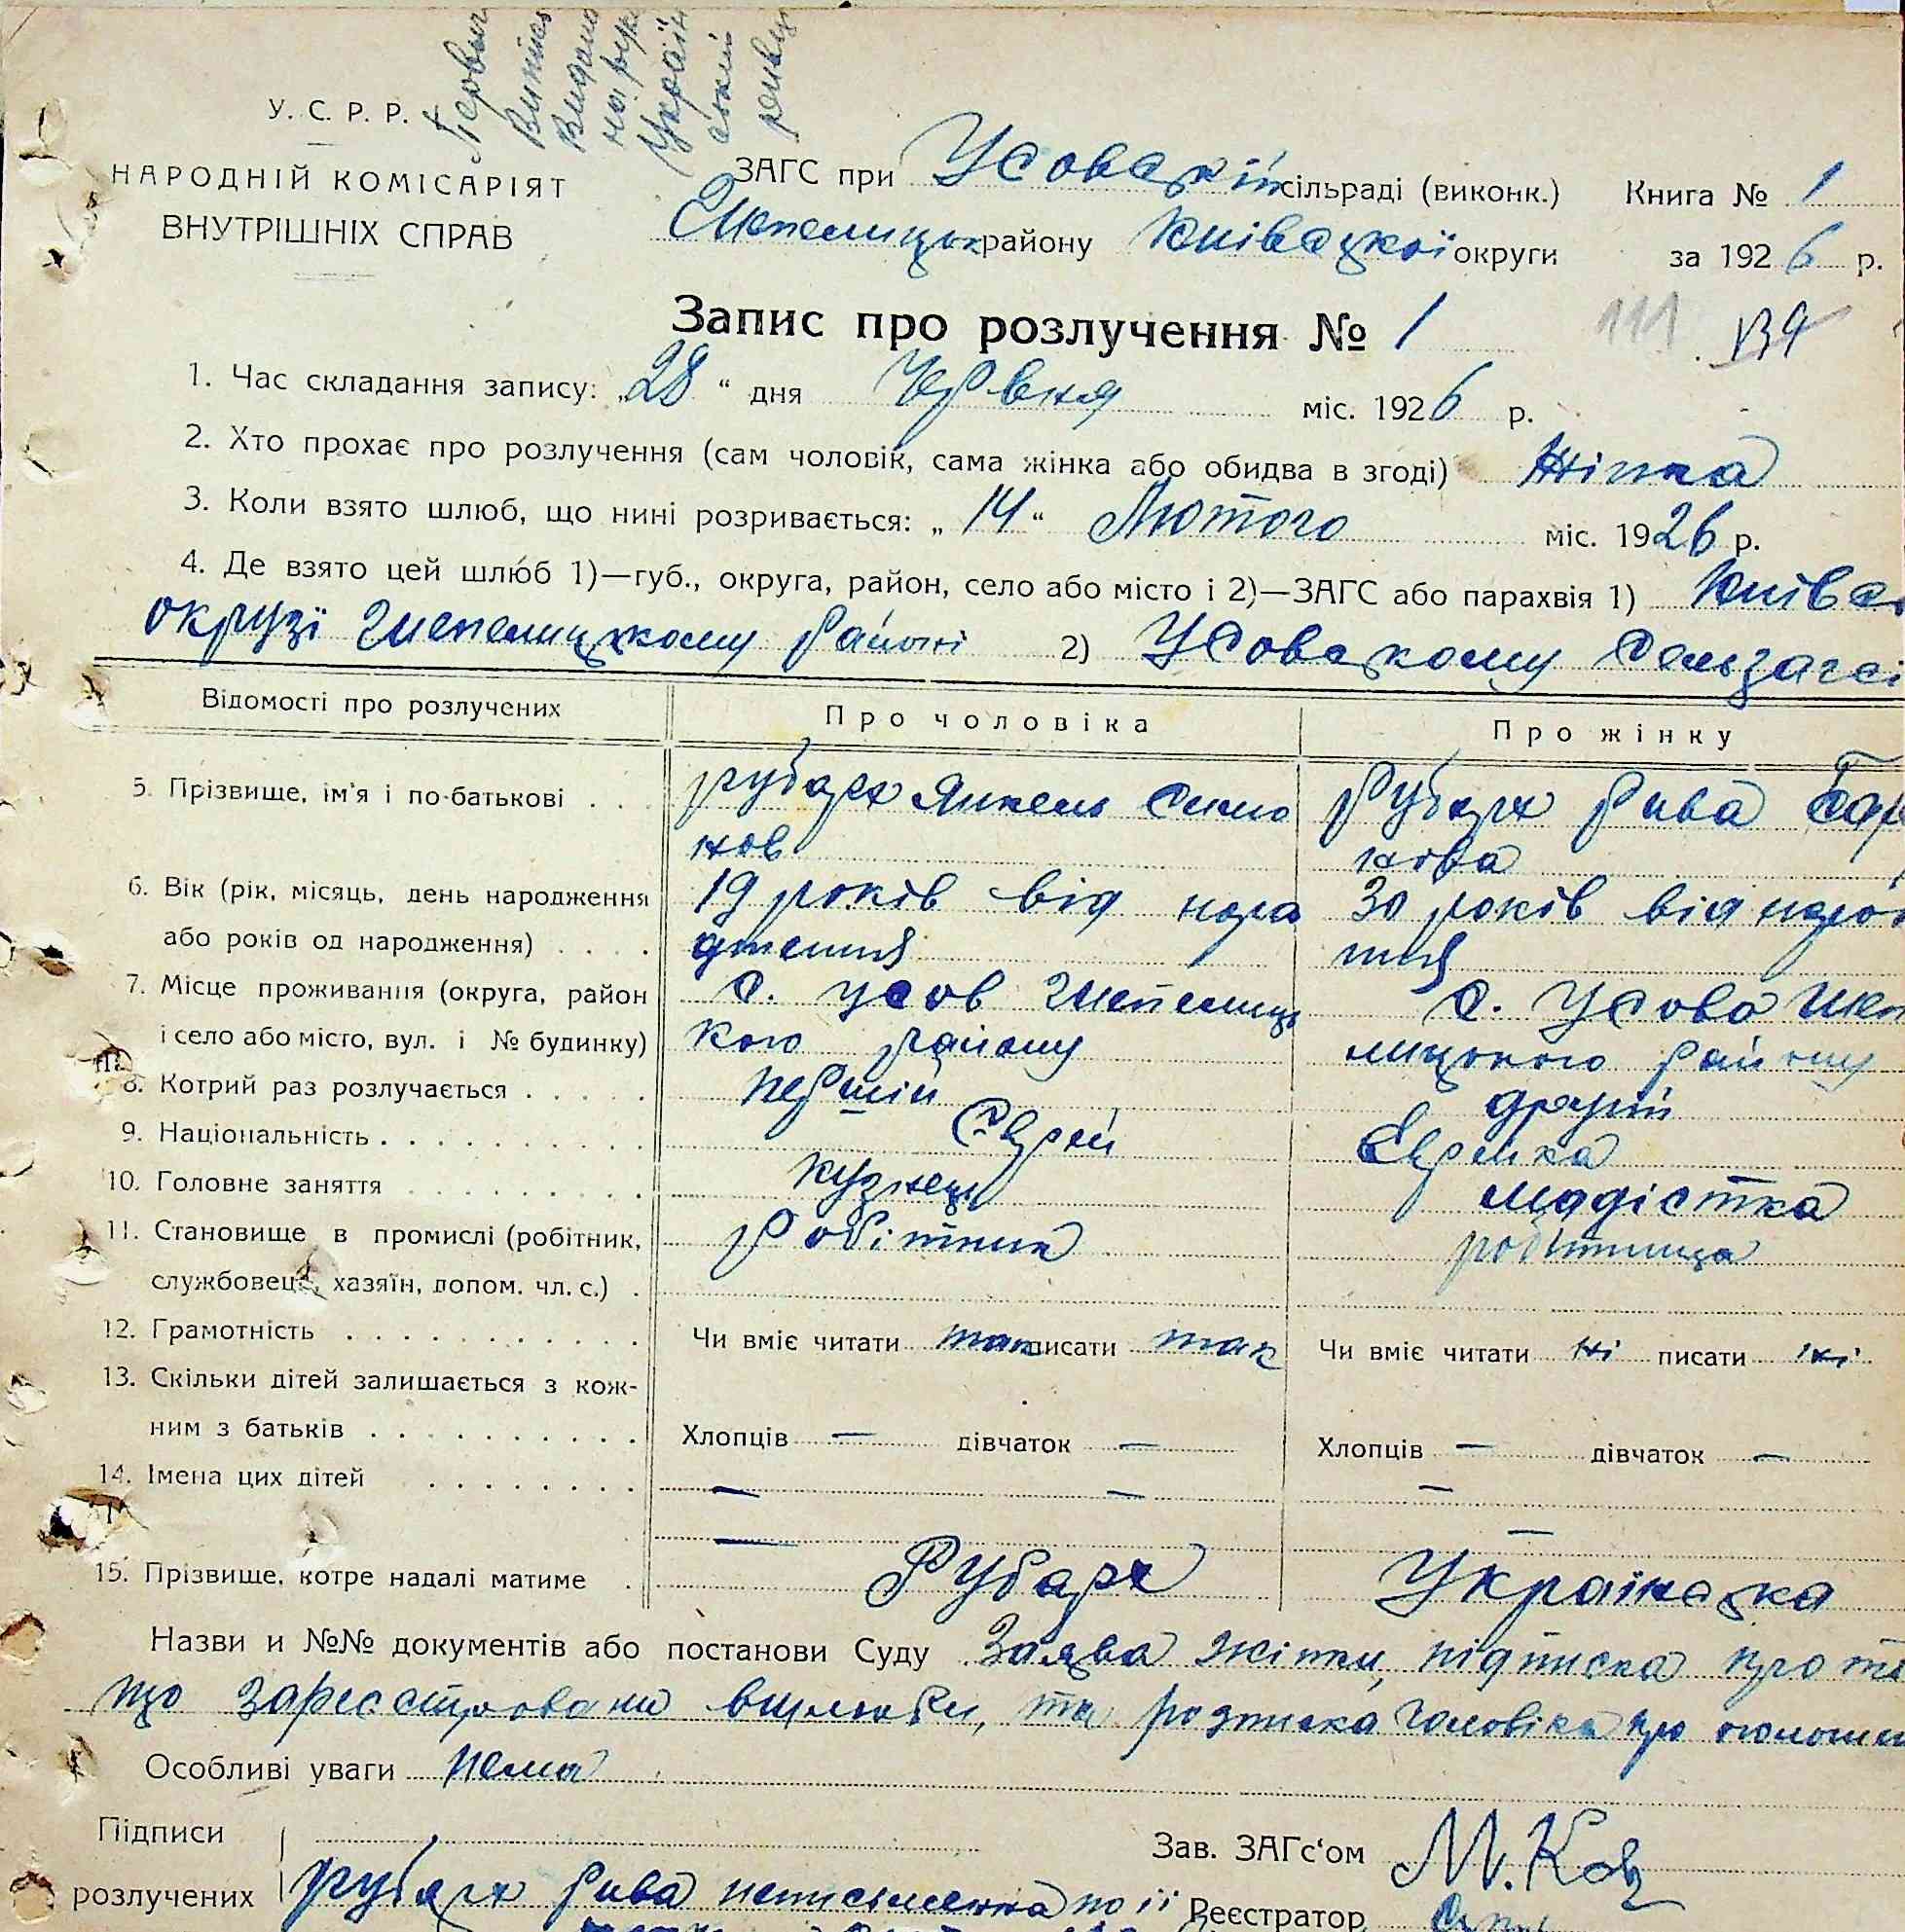 У. С. Р. Р.
НАРОДНІЙ КОМІСАРІЯТ
ВНУТРІШНІХ СПРАВ
ЗАГС при Усовскій сільраді (виконк.) Книга № 1
Шепелицьк району Київської округи за 1926 р.
Запис про розлучення № 1
111
1. Час складання запису: „28“ дня Червня міс. 1926 р.
2. Хто прохає про розлучення (сам чоловік, сама жінка або обидва в згоді) Жінка
3. Коли взято шлюб, що нині розривається: „14“ Лютого міс. 1926 р.
4. Де взято цей шлюб 1)—губ., округа, район, село або місто і 2)—ЗАГС або парахвія 1)
окрузі Шепелицкому районі 2) Усовскому Сельзагсі
Відомості про розлучених Про чоловіка Про жінку
5. Прізвище, ім'я і по-батькові . . . Рубарх Янкель Симо Рубарх Рива
нов нова
6. Вік (рік, місяць, день народження 19 років від наро 30 років від народ
або років од народження) . . . . дження ття
7. Місце проживання (округа, район С. Усов Шепелиць С. Усова Шеп
і село або місто, вул. і № будинку) кого району лицького району
8. Котрий раз розлучається . . . . . першій другий
9. Національність . . . . . . . . . . Єврей Єврейка
10. Головне заняття . . . . . . . . . кузнець Модістка
11. Становище в промислі (робітник, Робітник робітница
службовець, хазяїн, допом. чл. с.) .
12. Грамотність . . . . . . . . . . . . Чи вміє читати так писати так Чи вміє читати ні писати ні
13. Скільки дітей залишається з кож-
ним з батьків . . . . . . . . . . Хлопців — дівчаток — Хлопців — дівчаток —
14. Імена цих дітей . . . . . . . . — — —
— —
15. Прізвище, котре надалі матиме . Рубарх Українська
Назви и №№ документів або постанови Суду Заява жінки, підписка про те
що зареєстровани вшлюби, та розписка чоловіка про оголошен
Особливі уваги нема
Підписи
Зав. ЗАГс‘ом М. Ков
розлучених Рубарх Рива неписьменна по її Реєстратор